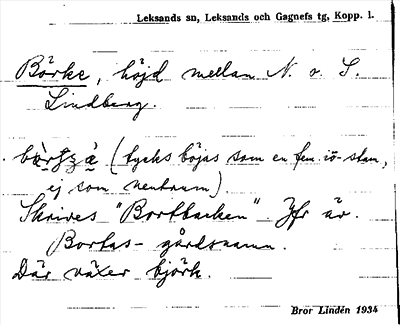 Leksands sn, Leksands och Gagnefs tg, Kopp. l.
Börke, höjd mellan N. o. S.
Lindberg.
(tycks böjas som en fem. iō-stam,
ej som neutrum).
Skrives "Bortbacken" Jfr äv.
Borkas- gårdsnamn.
Där växer björk.
Bror Lindén 1934